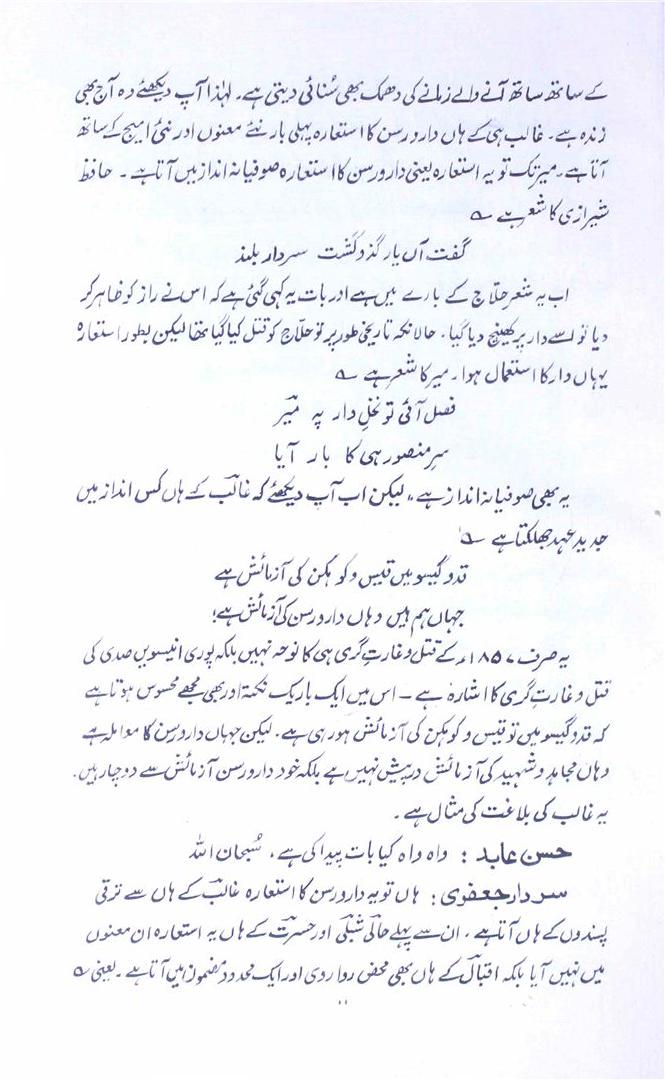 کے ساتھ ساتھ آنے والے زمانے کی دھمک بھی سُنائی دیتی ہے۔ لہٰذا آپ دیکھئے وہ آج بھی
زندہ ہے۔ غالب ہی کے ہاں دار و رسن کا استعارہ پہلی بار نئے معنوں اور نئی امیج کے ساتھ
آتا ہے۔ میر تک تو یہ استعارہ یعنی دار و رسن کا استعارہ صوفیانہ انداز میں آتا ہے۔ حافظ
شیرازی کا شعر ہے ؎
گفت آں یار گذد گشت سردار بلند
اب یہ شعر حلاّج کے بارے میں ہے اور بات یہ کہی گئی ہے کہ اس نے راز کو ظاہر کر
دیا تو اسے دار پر کھینچ دیا گیا۔ حالانکہ تاریخی طور پر تو حلاّج کو قتل کیا گیا تھا لیکن بطور استعارہ
یہاں دار کا استعمال ہوا۔ میر کا شعر ہے ؎
فصل آئی تو نخلِ دار پہ میرؔ
سرِ منصور ہی کا بار آیا
یہ بھی صوفیانہ انداز ہے، لیکن اب آپ دیکھئے کہ غالبؔ کے ہاں کس انداز میں
جدید عہد جھلکتا ہے ؎
قدو گیسو میں قیس و کوہکن کی آزمائش ہے
جہاں ہم ہیں وہاں دار و رسن کی آزمائش ہے!
یہ صرف ۱۸۵۷ء کے قتل و غارت گری ہی کا نوحہ نہیں بلکہ پوری انیسویں صدی کی
قتل و غارت گری کا اشارہ ہے۔ اس میں ایک باریک نکتہ اور بھی مجھے محسوس ہوتا ہے
کہ قدو گیسو میں تو قیس و کوہکن کی آزمائش ہو رہی ہے۔ لیکن جہاں دار و رسن کا معاملہ ہے
وہاں مجاہد و شہید کی آزمائش درپیش نہیں ہے بلکہ خود دار و رسن آزمائش سے دوچار ہیں۔
یہ غالب کی بلاغت کی مثال ہے۔
حسن عابد : واہ واہ کیا بات پیدا کی ہے، سُبحان اللہ
سردار جعفری : ہاں تو یہ دار و رسن کا استعارہ غالبؔ کے ہاں سے ترقی
پسندوں کے ہاں آتا ہے، ان سے پہلے حالیؔ شبلیؔ اور حسرتؔ کے ہاں یہ استعارہ ان معنوں
میں نہیں آیا بلکہ اقبالؔ کے ہاں بھی محض رواروی اور ایک محدود مفہوم میں آتا ہے۔ یعنی ؎
۱۱